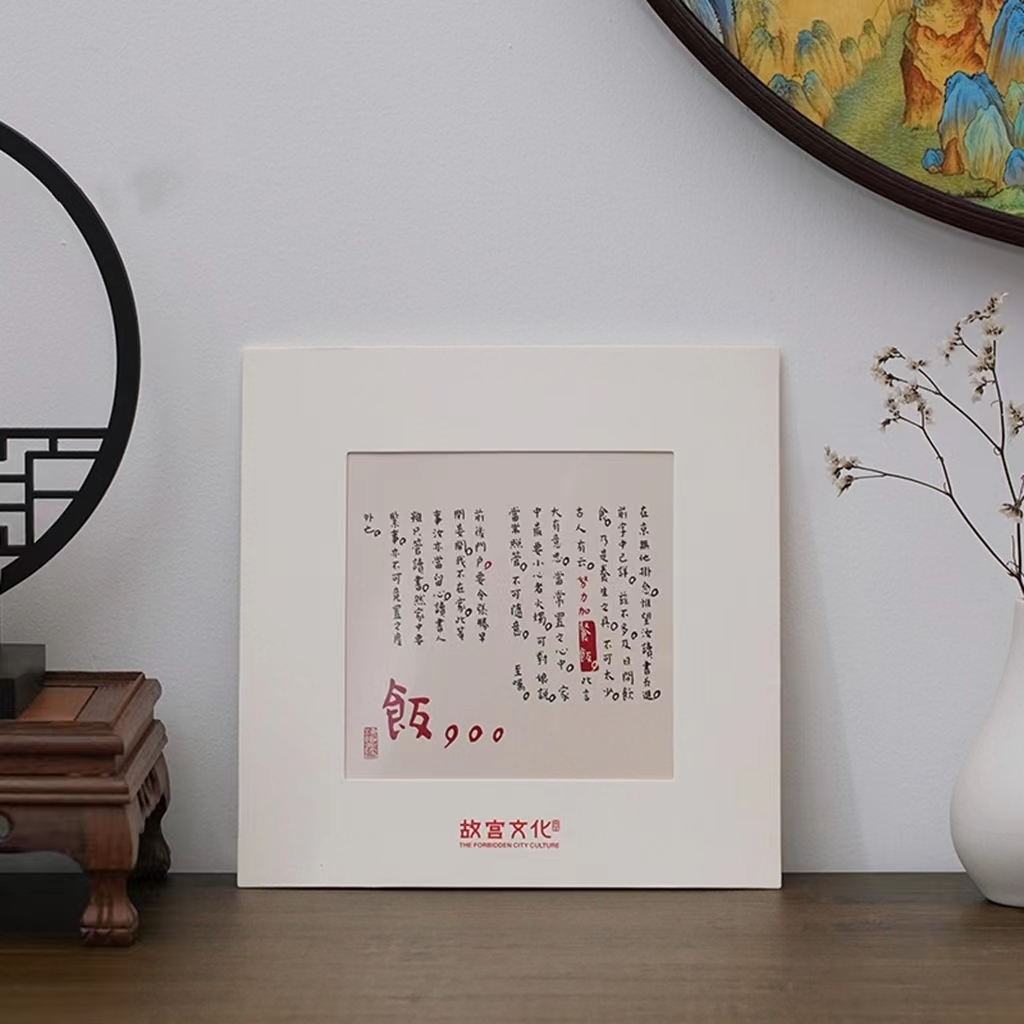 在京無他掛念惟望汝讀書長進。
前字中已詳。茲不多及。日間飲
食。乃是養生之具。不可太少。
古人有云。努力加餐飯。此言
大有意思。當常置之心中。家
中最要小心者火燭。可對娘說。
當照管。不可隨意。至囑。
前後門戶。要令張勝早
閉晏開。我不在家。此等
事汝亦當留心。讀書人
雖只管讀書。然家中要
緊事。亦不可竟置之度
外也。
飯900
故宫文化
THE FORBIDDEN CITY CULTURE